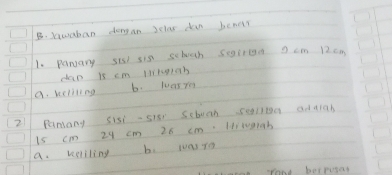 B. Jawaban dengan jelas dan benar
1. Panjang sisi sisi sebuah segitiga 9 cm 12 cm
dan 15 cm Hitunglah
a. keliling b. luasya
2 Panjang sisi - sisi sebuah segitiga adalah
15 cm 24 cm 26 cm. Hitunglah
a. keliling b. luasya
yang berpusat